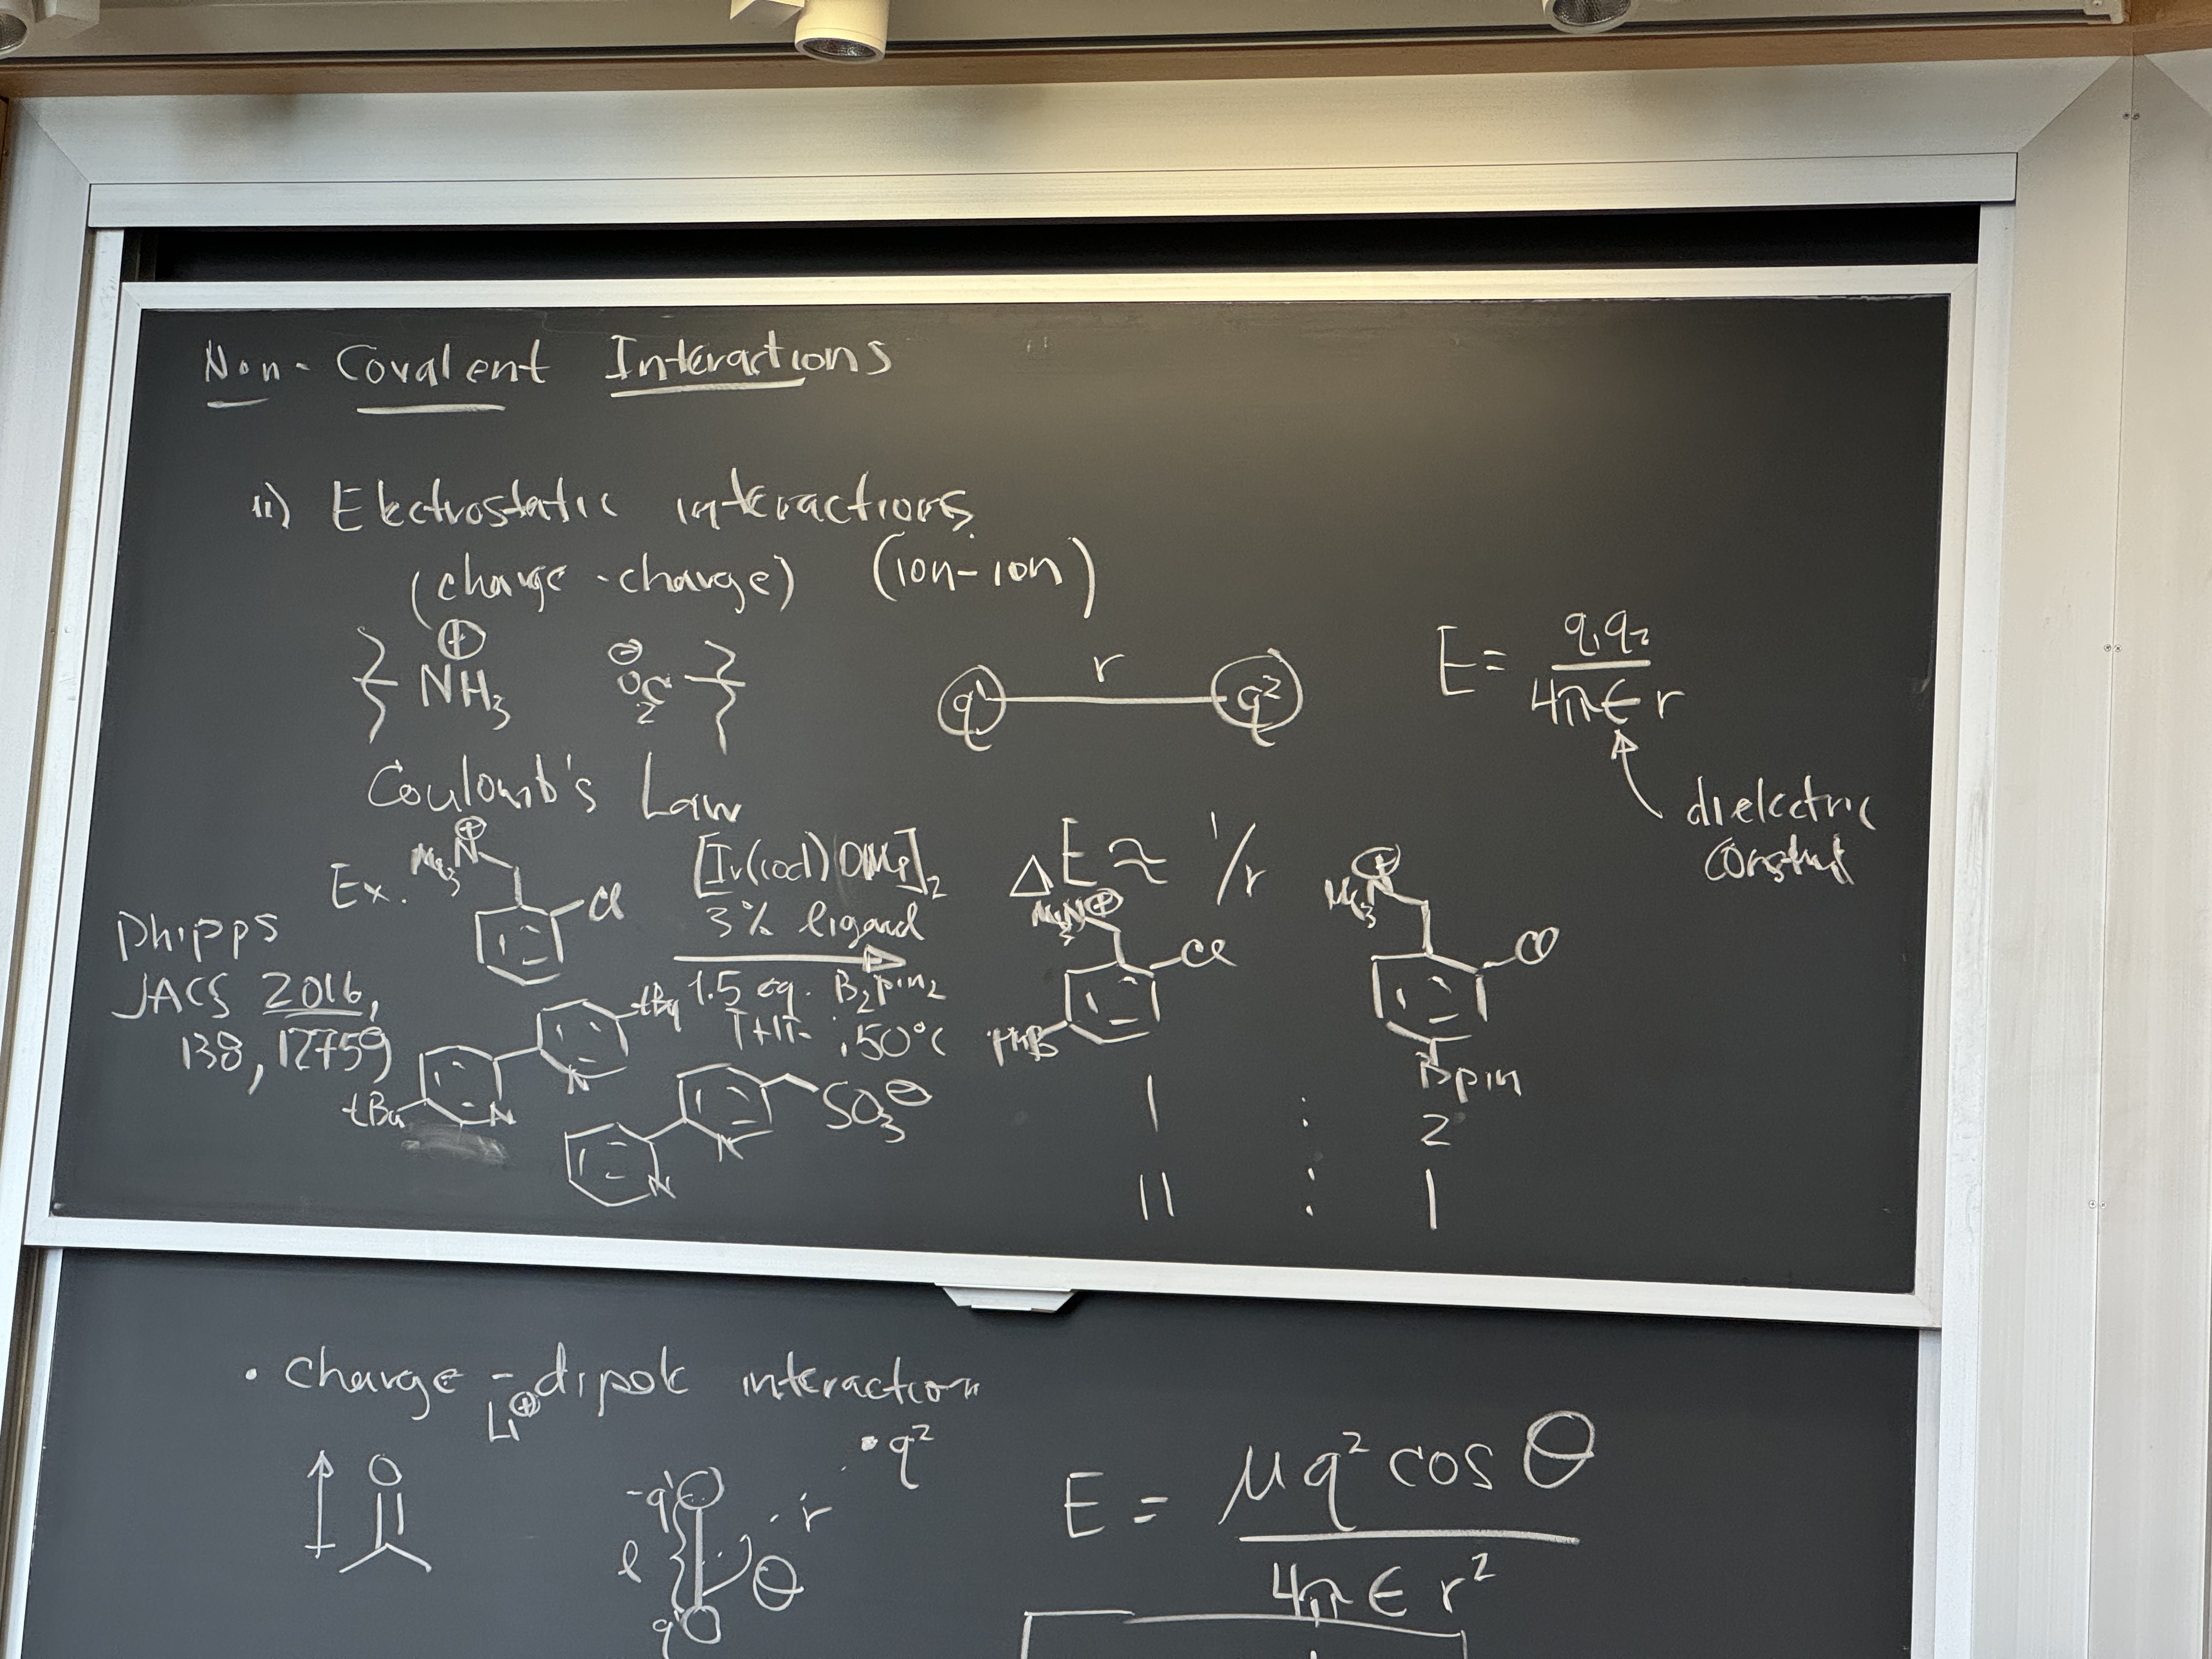 Non-Covalent Interactions
ii) Electrostatic interactions
(charge-charge) (ion-ion)
⊕
NH₃
⊖
O₂C
q¹ r q²
E = q₁q₂ / 4πεr
dielectric constant
Coulomb's Law
ΔE ≈ 1/r
Ex.
Me₃N⊕
Cl
[Ir(cod)OMe]₂
3% ligand
1.5 eq. B₂pin₂
THF, 50°C
Phipps
JACS 2016,
138, 12759
tBu
N
N
tBu
N
N
SO₃⊖
Me₃N⊕
Cl
Me₃N⊕
Cl
Bpin
1 : 2
11 : 1
• Charge-dipole interaction
Li⊕
O
-q¹
l
q¹
θ
r
• q²
E = μq² cos θ / 4πε r²